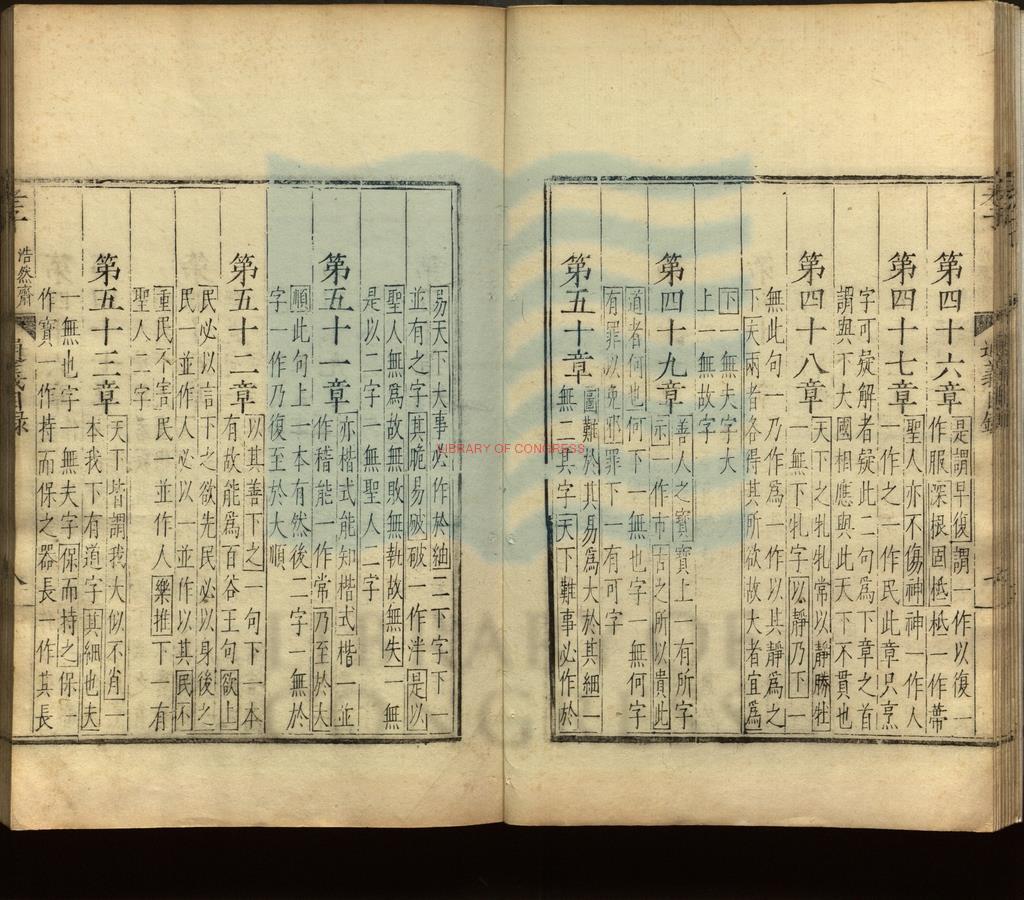 第四十六章 是謂早復謂一作以復一
作服深根固柢柢一作蔕
第四十七章 聖人亦不傷神神一作人
一作之一作民此章只烹
字可疑解者疑此二句爲下章之首
謂與不大國相應與此天下不貫也
第四十八章 天下之牝牝常以靜勝牡
一無下牝字以靜乃下一
無此句一乃作爲一作以其靜爲之
下天兩者各得其所欲故大者宜爲
下一無夫字大
上一無故字
第四十九章 善人之寶寶上一有所字
示一作市古之所以貴此
道者何也何下一無也字一無何字
有罪以免邪罪下一有可字
第五十章 圖難於其易爲大於其細一
無二其字天下難事必作於
易天下大事必作於細二下字下一
並有之字其脆易破破一作泮是以
聖人無爲故無敗無執故無失一無
是以二字一無聖人二字
第五十一章 亦楷式能知楷式楷一並
作稽能一作常乃至於大
順此句上一本有然後二字一無於
字一作乃復至於大順
第五十二章 以其善下之一句下一本
有故能爲百谷王句欲上
民必以言下之欲先民必以身後之
民一並作人必以一並作以其民不
重民不害民一並作人樂推下一有
聖人二字
第五十三章 天下皆謂我大似不肖一
本我下有道字其細也夫
一無也字一無夫字保而持之保一
作寶一作持而保之器長一作其長
老子 浩然齋 道義目錄 八
LIBRARY OF CONGRESS